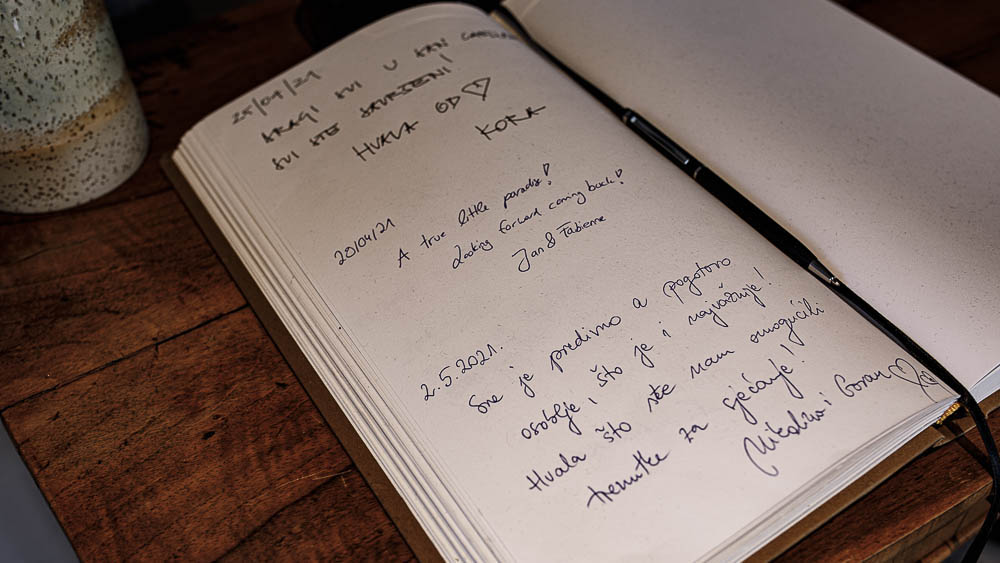 25/04/21
DRAGI SVI U KAN
SVI STE SAVRŠENI!
HVALA OD
KORA
28/04/21
A true little paradise!
Looking forward coming back!
Jan & Fabienne
2.5.2021.
Sve je predivno a pogotovo
osoblje, što je i najvažnije!
Hvala što ste nam omogućili
trenutke za sjećanje!
Nikolina i Goran